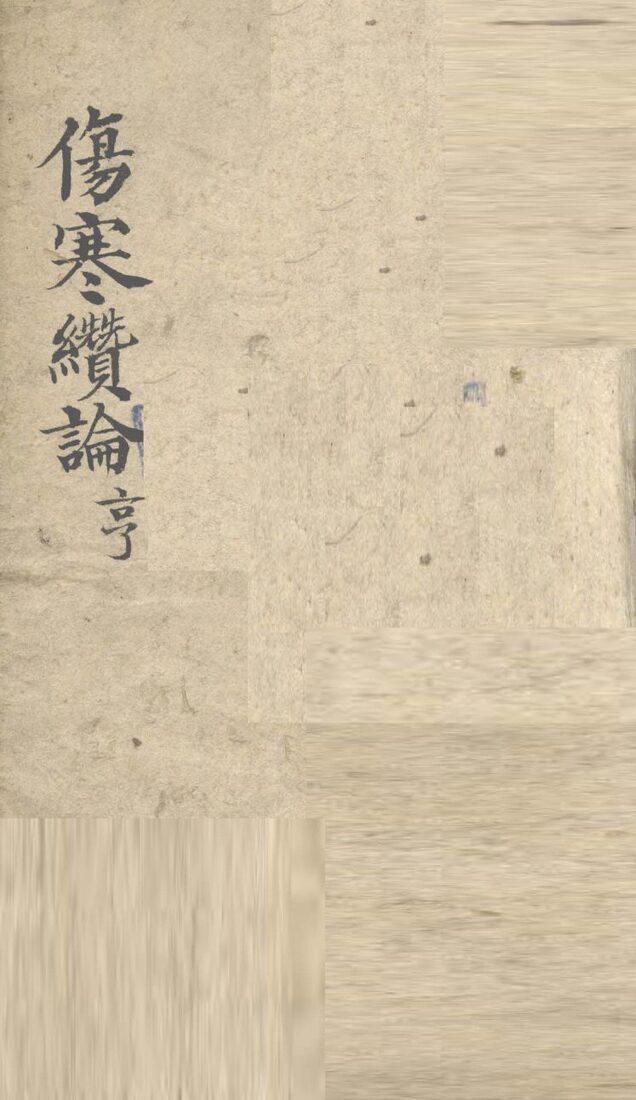 傷寒纘論亨